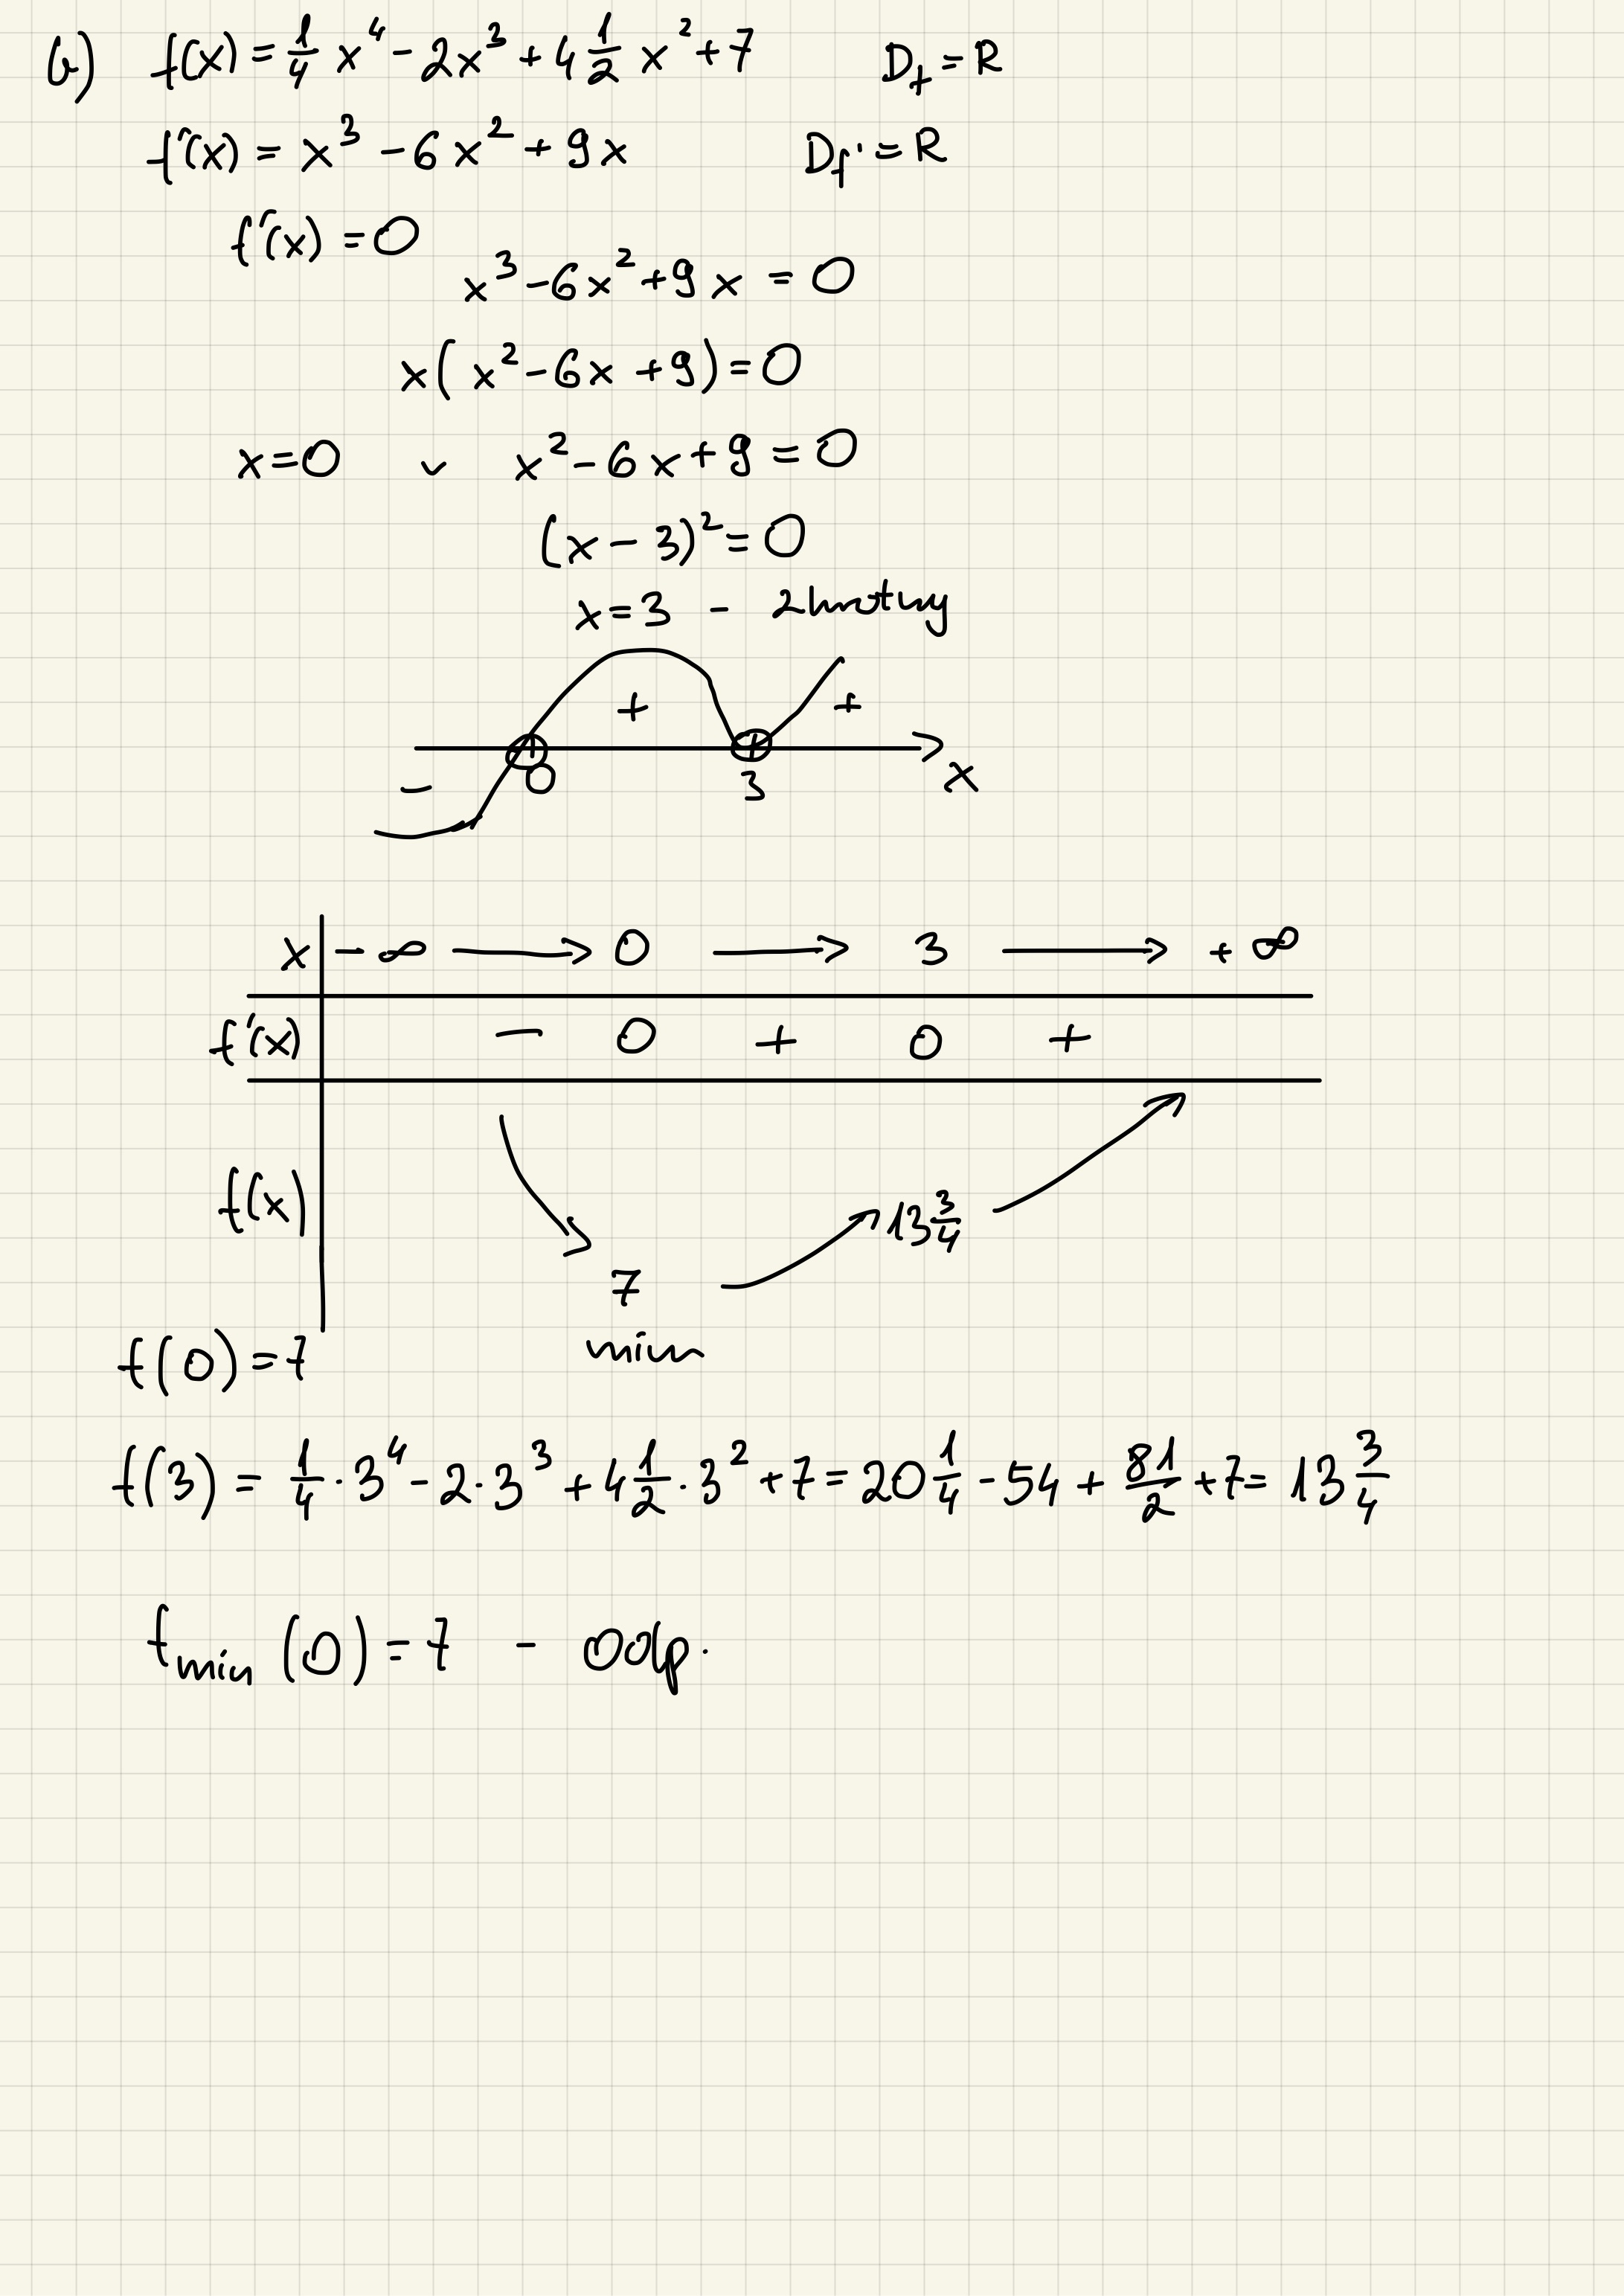 b) f(x) = 1/4 x^4 - 2x^3 + 4 1/2 x^2 + 7 D_f = R
f'(x) = x^3 - 6x^2 + 9x D_f' = R
f'(x) = 0
x^3 - 6x^2 + 9x = 0
x(x^2 - 6x + 9) = 0
x = 0 ∨ x^2 - 6x + 9 = 0
(x - 3)^2 = 0
x = 3 - 2krotny
+ +
- 0 3 x
x | -∞ → 0 → 3 → +∞
f'(x) | - 0 + 0 +
f(x) | ↘ 7 ↗ 13 3/4 ↗
min
f(0) = 7
f(3) = 1/4 · 3^4 - 2 · 3^3 + 4 1/2 · 3^2 + 7 = 20 1/4 - 54 + 81/2 + 7 = 13 3/4
f_min (0) = 7 - odp.